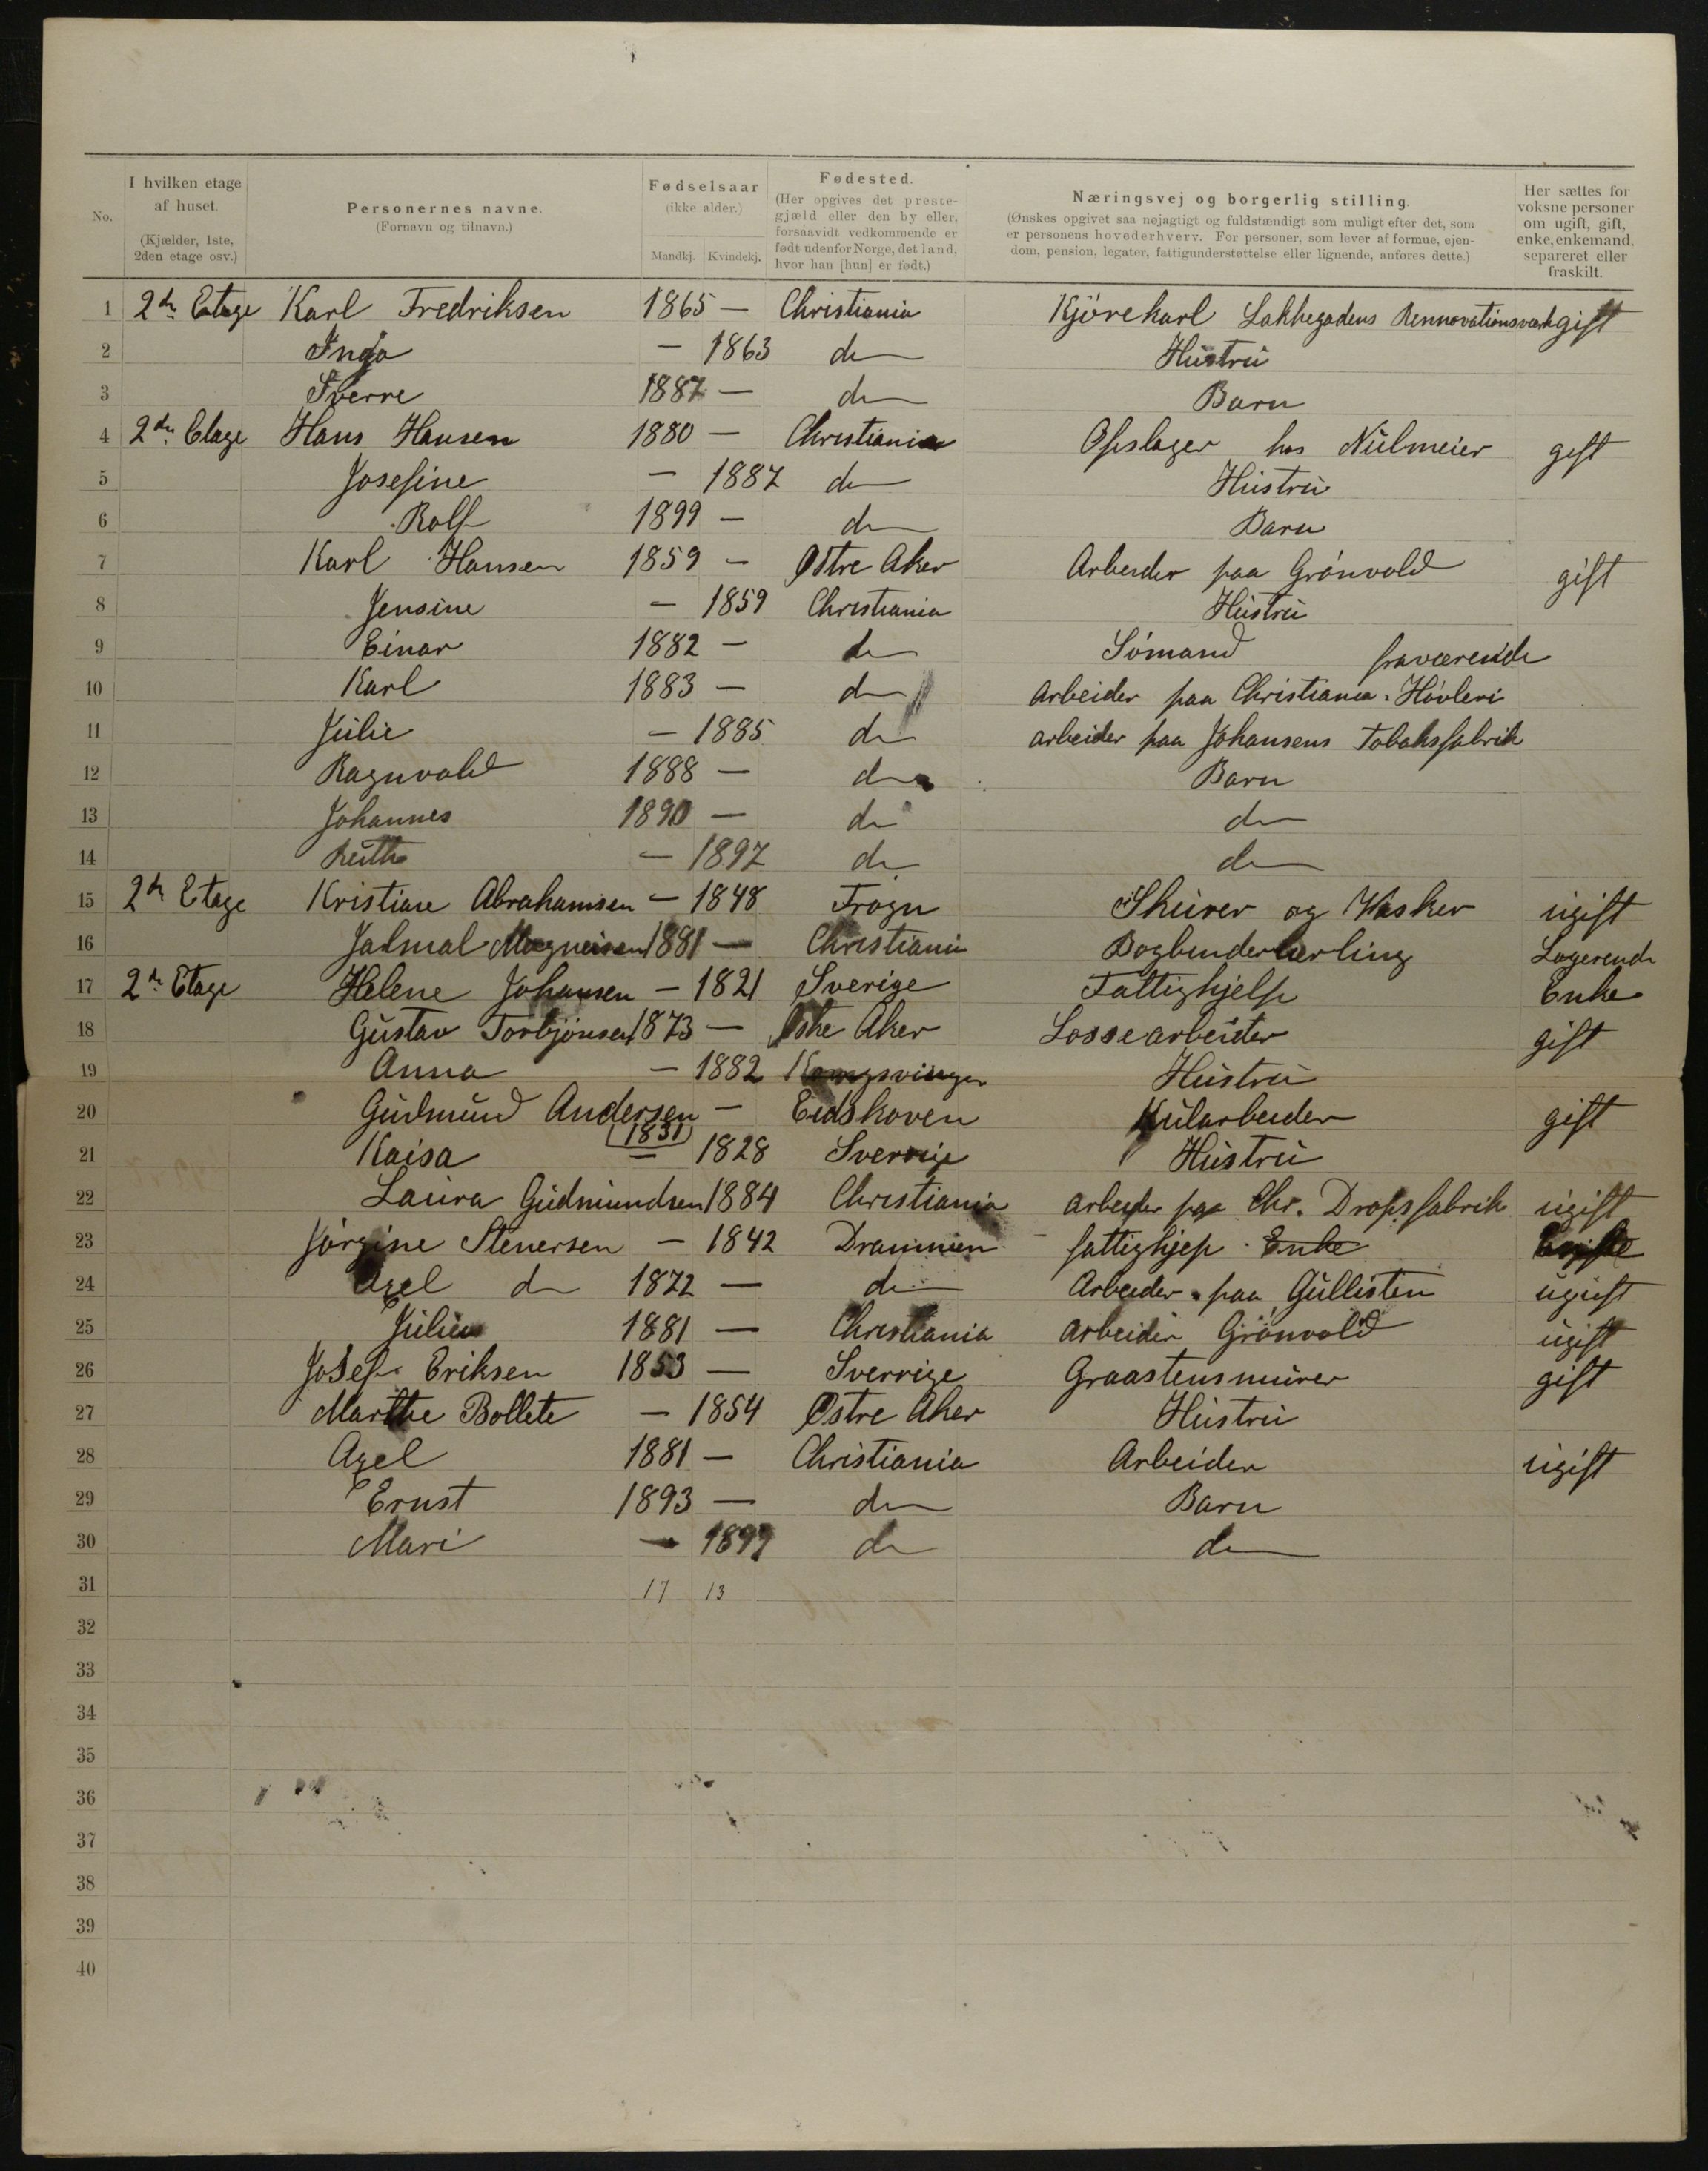 No.
I hvilken etage af huset.
(Kjælder, 1ste, 2den etage osv.)
Personernes navne.
(Fornavn og tilnavn.)
Fødselsaar
(ikke alder.)
Mandkj. Kvindekj.
Fødested.
(Her opgives det prestegjæld eller den by eller, forsaavidt vedkommende er født udenfor Norge, det land, hvor han [hun] er født.)
Næringsvej og borgerlig stilling.
(Ønskes opgivet saa nøjagtigt og fuldstændigt som muligt efter det, som er personens hovederhverv. For personer, som lever af formue, ejendom, pension, legater, fattigunderstøttelse eller lignende, anføres dette.)
Her sættes for voksne personer om ugift, gift, enke, enkemand, separeret eller fraskilt.
1 2den Etage Karl Fredriksen 1865 — Christiania Kjørekarl Lakkegadens Rennovationsværk gift
2 Inga — 1863 do Hustru
3 Sverre 1887 — do Barn
4 2den Etage Hans Hansen 1880 — Christiania Opslager hos Nülmeier gift
5 Josefine — 1887 do Hustru
6 Rolf 1899 — do Barn
7 Karl Hansen 1859 — Østre Aker Arbeider paa Grønvold gift
8 Jensine — 1859 Christiania Hustru
9 Einar 1882 — do Sømand fraværende
10 Karl 1883 — do Arbeider paa Christiania Høvleri
11 Julie — 1885 do arbeider paa Johansens Tobaksfabrik
12 Ragnvald 1888 — do Barn
13 Johannes 1890 — do do
14 Ruth — 1897 do do
15 2den Etage Kristiane Abrahamsen — 1848 Frogn Skurer og Wasker ugift
16 Jalmal Magneisen 1881 — Christiania Bogbinderlærling Logerende
17 2den Etage Helene Johansen — 1821 Sverige Fattighjelp Enke
18 Gustav Torbjønsen 1873 — Østre Aker Lossearbeider gift
19 Anna — 1882 Kongsvinger Hustru
20 Gudmund Andersen 1831 — Eidskoven Kularbeider gift
21 Kaisa — 1828 Sverrige Hustru
22 Laura Gudmundsen 1884 Christiania arbeider paa Chr. Dropsfabrik ugift
23 Jørgine Stenersen — 1842 Drammen fattighjep Enke
24 Axel do 1872 — do Arbeider paa Gullisten ugift
25 Julius 1881 — Christiania Arbeider Grønvold ugift
26 Josef Eriksen 1853 — Sverrige Graastensmurer gift
27 Marthe Bollete — 1854 Østre Aker Hustru
28 Axel 1881 — Christiania Arbeider ugift
29 Ernst 1893 — do Barn
30 Mari — 1897 do do
31 17 13
32
33
34
35
36
37
38
39
40